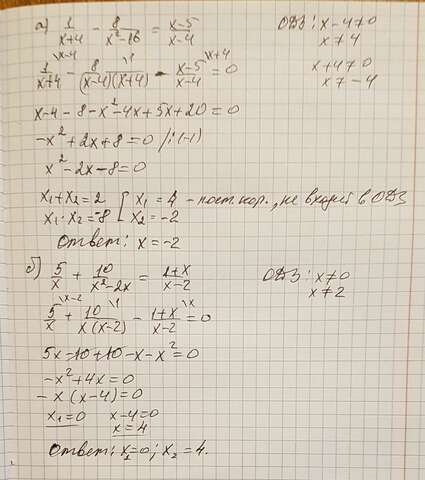 а) 1/(x+4) - 8/(x²-16) = (x-5)/(x-4)
ОДЗ: x-4≠0
x≠4
1/(x+4) \x-4 - 8/((x-4)(x+4)) \1 - (x-5)/(x-4) \x+4 = 0
x+4≠0
x≠-4
x-4-8-x²-4x+5x+20=0
-x²+2x+8=0 /:(-1)
x²-2x-8=0
x₁+x₂=2 [ x₁=4 - пост. кор., не входит в ОДЗ
x₁·x₂=-8 [ x₂=-2
Ответ: x=-2
б) 5/x + 10/(x²-2x) = (1+x)/(x-2)
ОДЗ: x≠0
x≠2
5/x \x-2 + 10/(x(x-2)) \1 - (1+x)/(x-2) \x = 0
5x-10+10-x-x²=0
-x²+4x=0
-x(x-4)=0
x₁=0 x-4=0
x=4
Ответ: x₁=0; x₂=4.